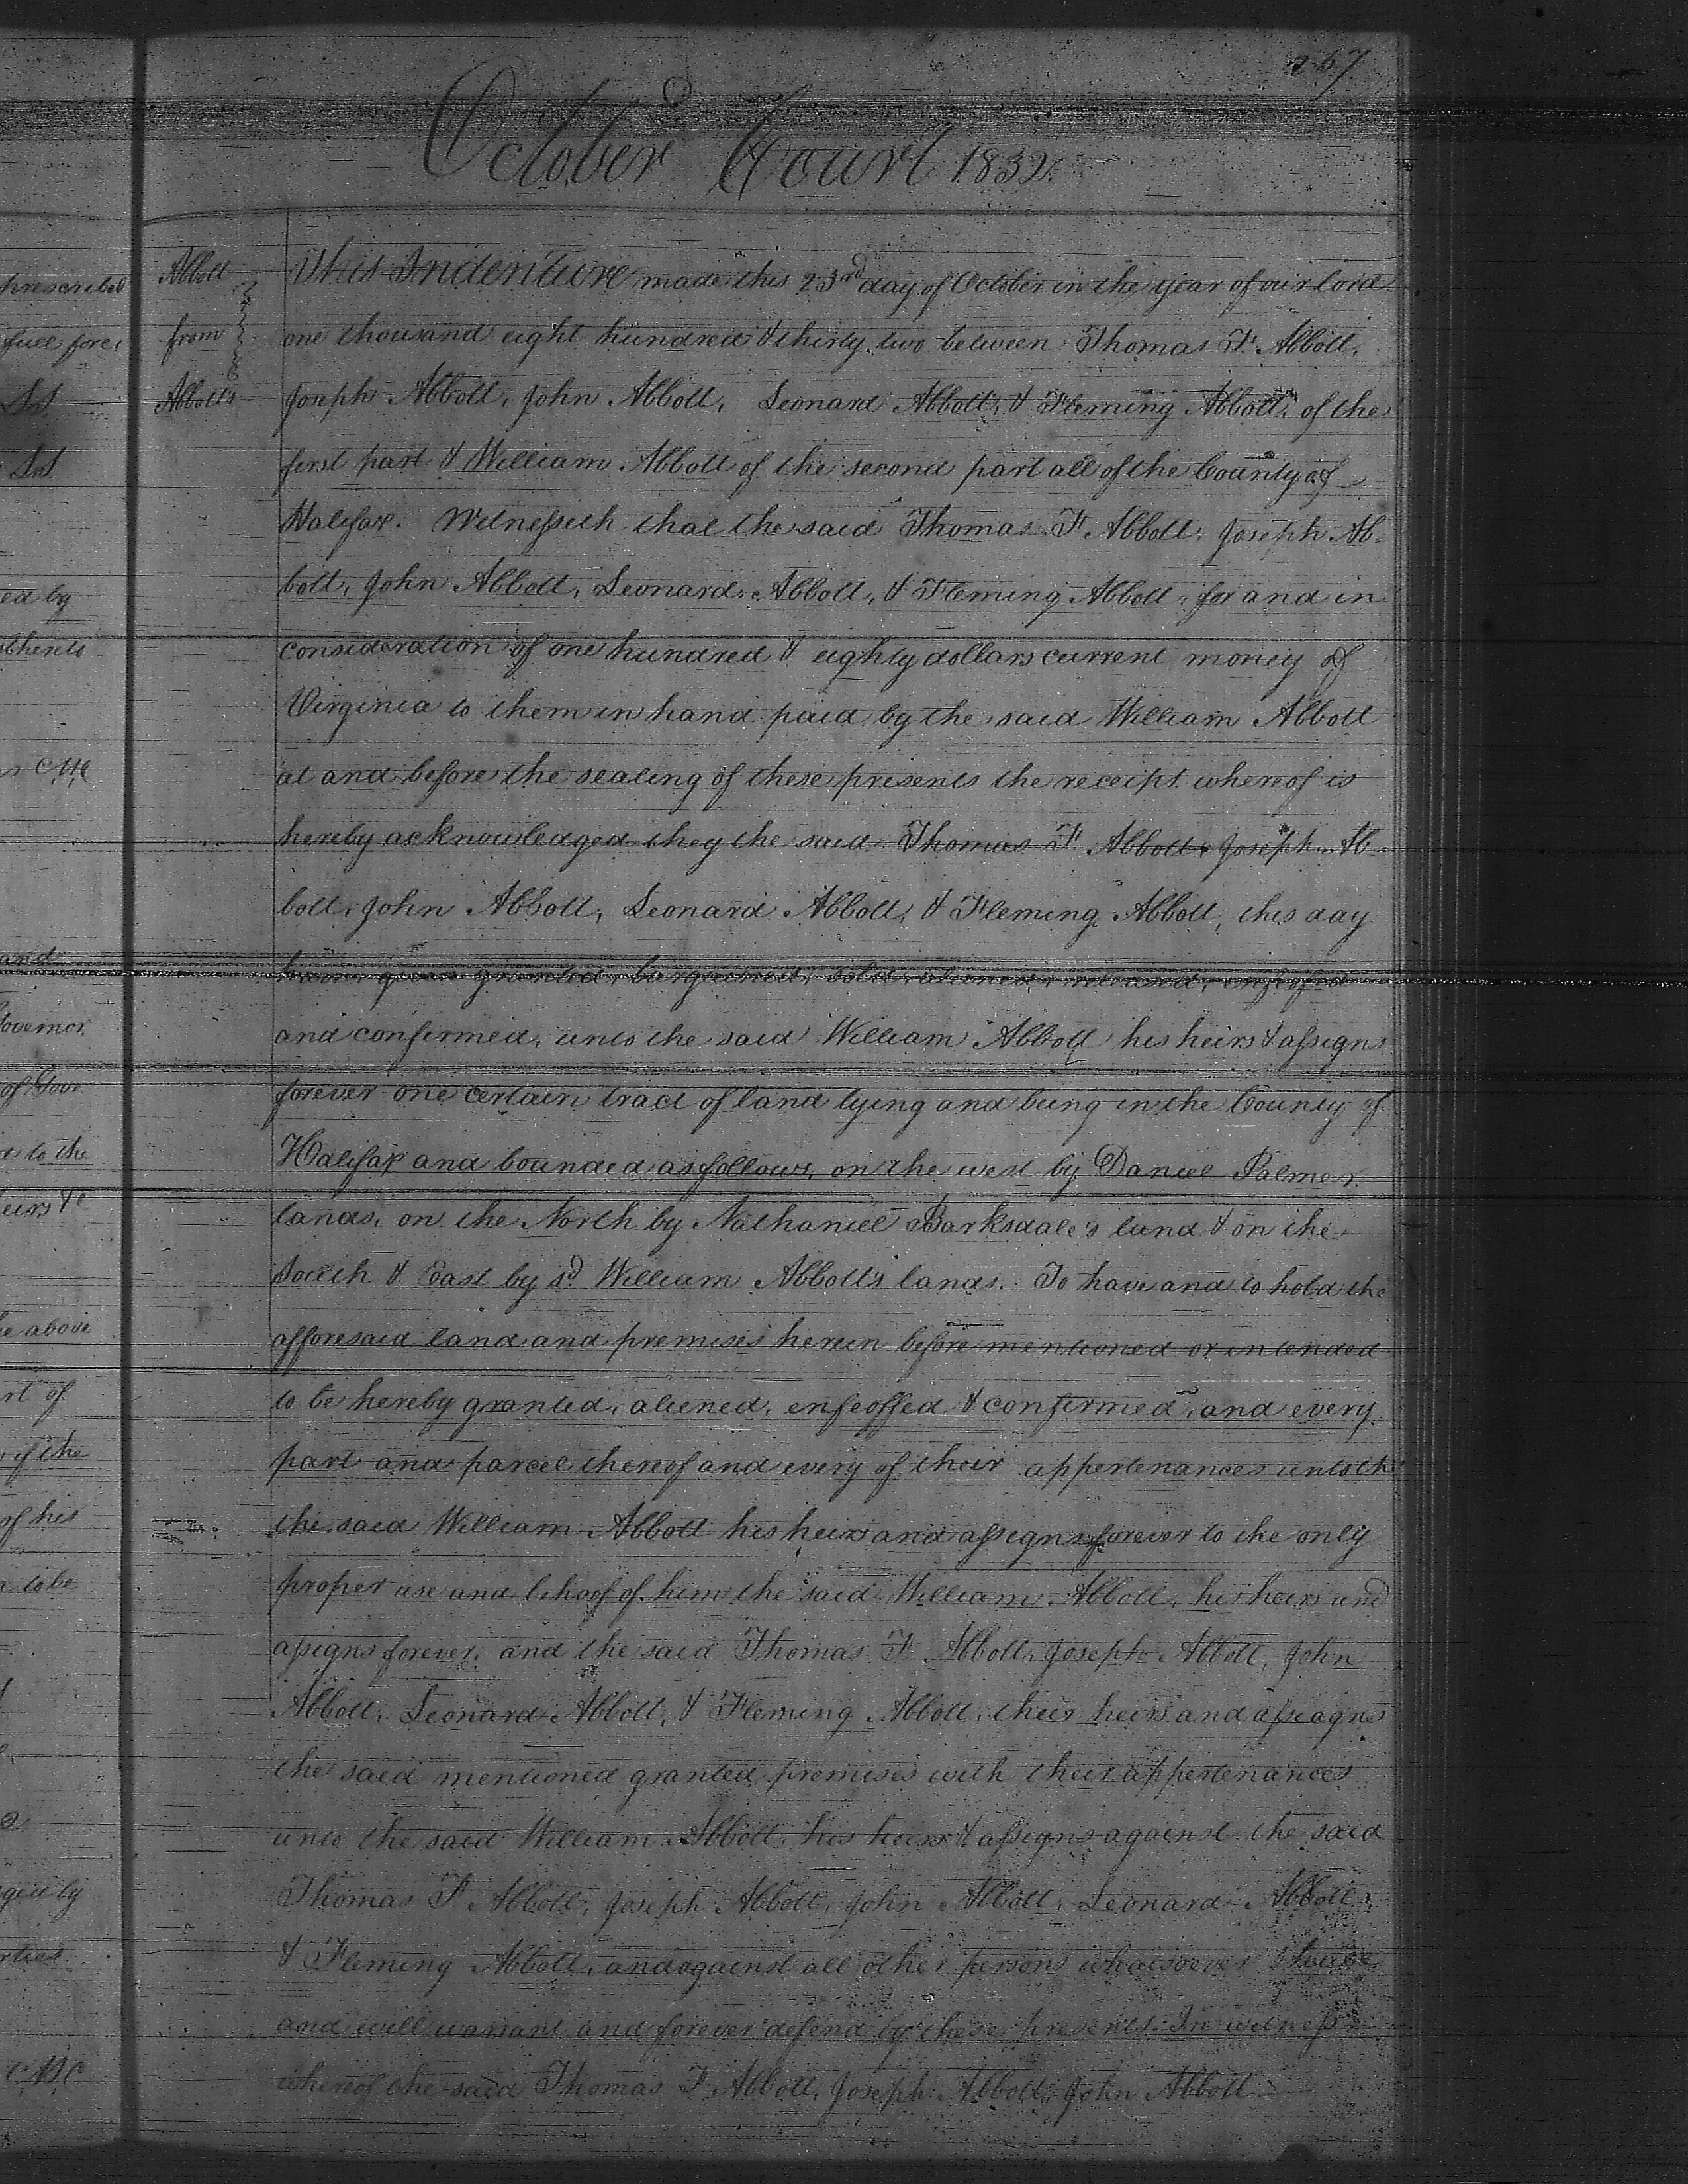 267
October Court 1832.
prescribed
full force
ed by
and
Governor.
of Gov.
to the
heirs &c
he above
rt of
if the
of his
to be
ged by
rties
Abbott
from
Abbotts
This Indenture made this 23rd day of October in the year of our lord
one thousand eight hundred & thirty two between Thomas F. Abbott,
Joseph Abbott, John Abbott, Leonard Abbott, & Fleming Abbott, of the
first part & William Abbott of the second part all of the County of
Halifax. Witnesseth that the said Thomas F Abbott, Joseph Ab-
bott, John Abbott, Leonard Abbott, & Fleming Abbott, for and in
consideration of one hundred & eighty dollars current money of
Virginia to them in hand paid by the said William Abbott
at and before the sealing of these presents the receipt whereof is
hereby acknowledged they the said Thomas F Abbott, Joseph Ab-
bott, John Abbott, Leonard Abbott, & Fleming Abbott, this day
have given granted, bargained, sold, aliened, released,
and confirmed, unto the said William Abbott his heirs & assigns
forever one certain tract of land lying and being in the County of
Halifax and bounded as follows, on the west by Daniel Palmer
lands, on the North by Nathaniel Barksdale's land & on the
South & East by sd William Abbott's lands. To have and to hold the
afforesaid land and premises herein before mentioned or intended
to be hereby granted, aliened, enfeoffed & confirmed, and every
part and parcel thereof and every of their appertenances unto th
the said William Abbott his heirs and assigns forever to the only
proper use and behoof of him the said William Abbott, his heirs and
assigns forever, and the said Thomas F Abbott, Joseph Abbott, John
Abbott, Leonard Abbott, & Fleming Abbott, their heirs and assiagns
the said mentioned granted premises with their appertenances
unto the said William Abbott, his heirs & assigns against the said
Thomas F Abbott, Joseph Abbott, John Abbott, Leonard Abbott,
& Fleming Abbott, and against all other persons whatsoever
and will warrant and forever defend by these presents. In witness
whereof the said Thomas F Abbott, Joseph Abbott, John Abbott